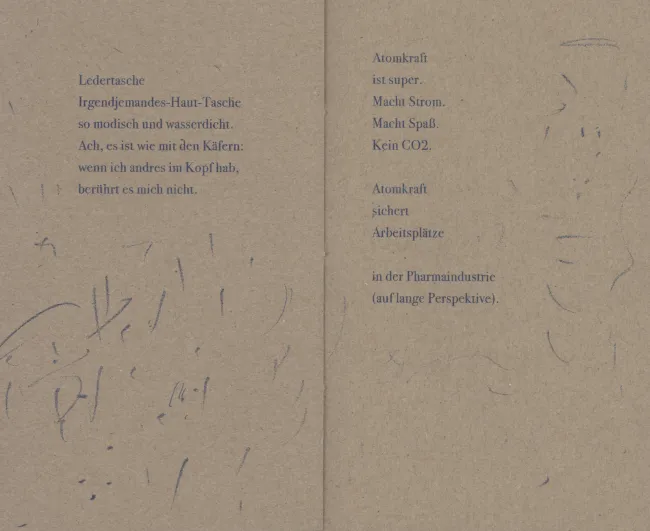 Ledertasche
Irgendjemandes-Haut-Tasche
so modisch und wasserdicht.
Ach, es ist wie mit den Käfern:
wenn ich andres im Kopf hab,
berührt es mich nicht.
Atomkraft
ist super.
Macht Strom.
Macht Spaß.
Kein CO2.
Atomkraft
sichert
Arbeitsplätze
in der Pharmaindustrie
(auf lange Perspektive).